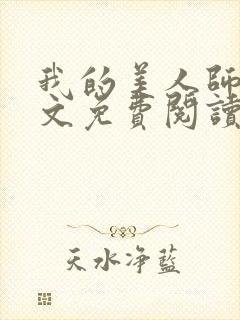 我的美人師
文免費閱讀
天水净藍